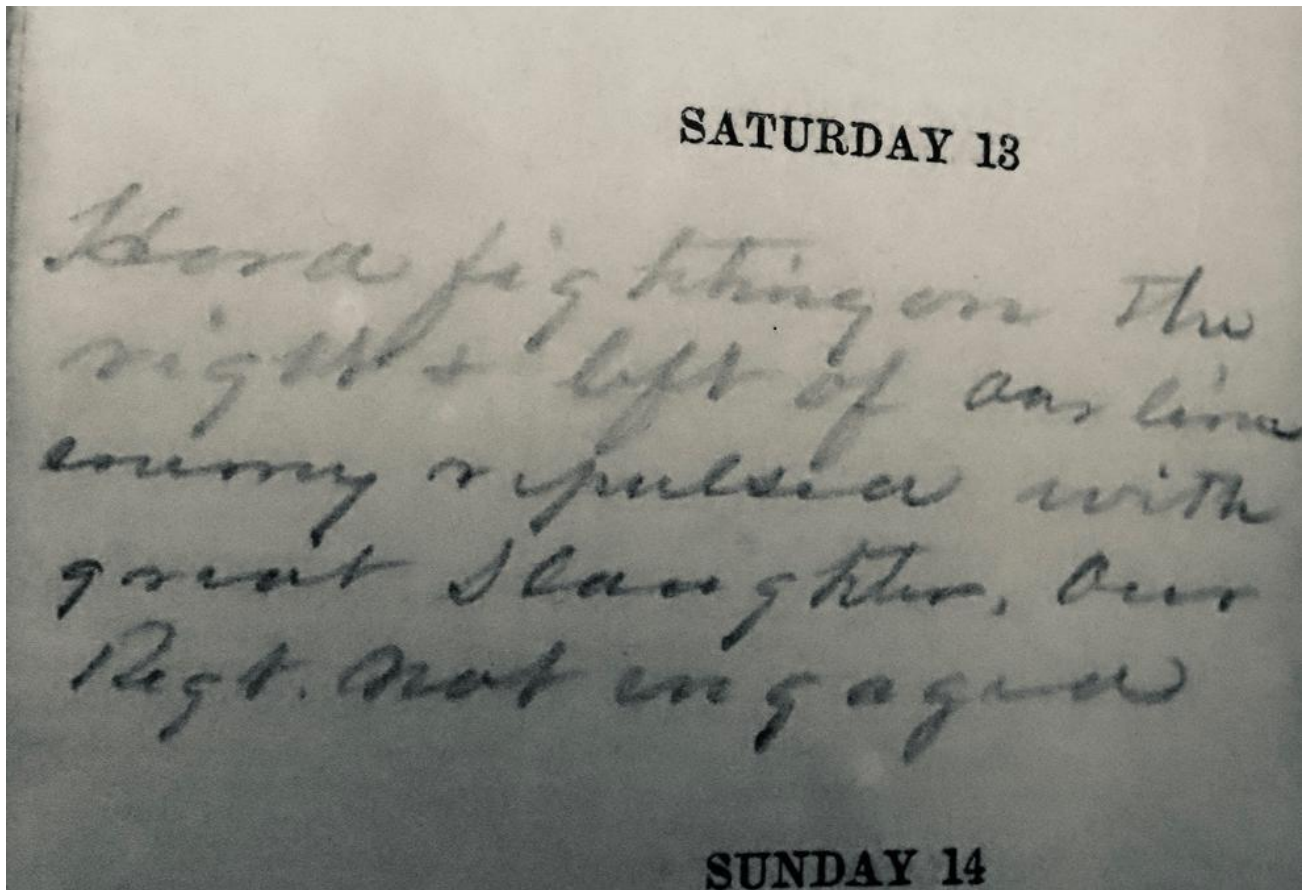 SATURDAY 13
Hard fighting on the
right & left of our line
enemy repulsed with
great Slaughter. Our
Regt. not engaged
SUNDAY 14